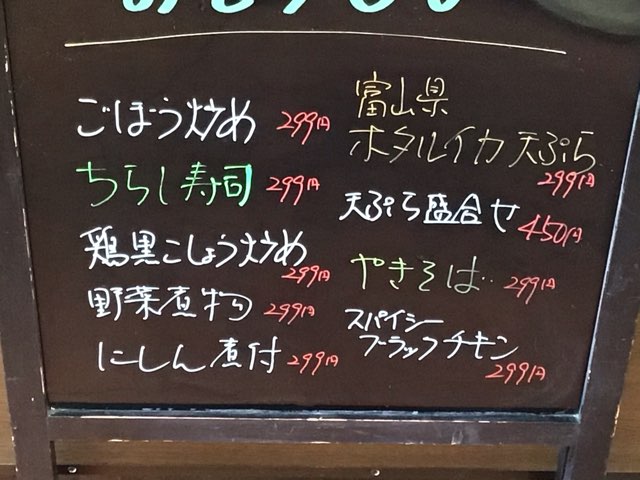 ごぼう炒め 299円
ちらし寿司 299円
鶏黒こしょう炒め
299円
野菜煮物 299円
にしん煮付 299円
富山県
ホタルイカ天ぷら
299円
天ぷら盛合せ 450円
やきそば 299円
スパイシー
ブラックチキン
299円